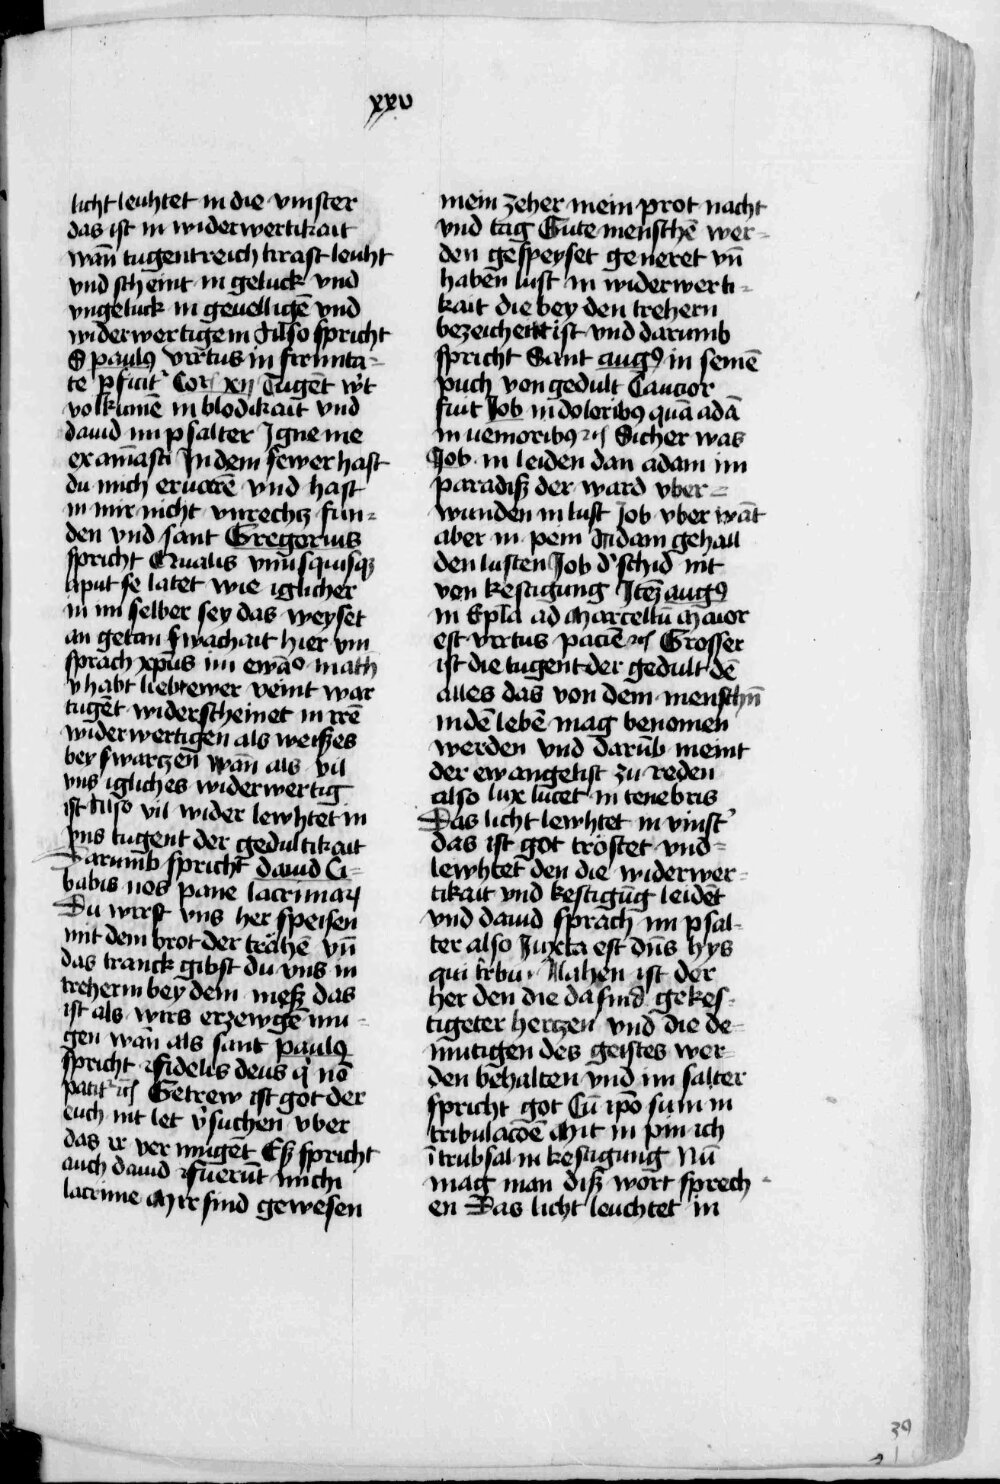 xxv
licht leuhtet in die vinster
das ist in widerwertikait
wan̄ tugentreich krast leuht
vnd scheint in geluck vnd
vngeluck in geuelligē vnd
widerwertigem Also spricht
S paulꝯ virtus in firmita-
te ꝑficitᷣ Cor xij Tugēt wirt
volkumē in blodikait vnd
dauid im psalter Igne me
examinasti In dem fewer hast
du mich ervarē vnd hast
in mir nicht vnrechtz fun-
den vnd sant Gregorius
spricht Qualis vnusquisqꝫ
aput se latet wie iglicher
in im selber sey das weyset
an getan swachait hier vm
sprach xp̄us im ewāᵒ math
v habt liebe ewer veint war
tugēt widerscheinet in irē
widerwertigen als weiszes
bey swartzen wan̄ als vil
vns igliches widerwertig
ist Also vil wider lewhtet in
vns tugent der gedultikait
Darumb spricht dauid Ci-
babis nos pane lacrimaꝝ
Du wirst vns her speisen
mit dem brot der trähē vn̄
das tranck gibst du vns in
trehern bey dem mesz das
ist als wirs erzewgē mu-
gen wan̄ als sant paulꝯ
spricht fidelis deus qͥ nō
patitᷣ ⁊c̄ Getrew ist got der
euch nit let v̾suchen vber
das ir vermugēt Esz spricht
auch dauid fuerūt michi
lacrime Mir sind gewesen
mein zeher mein prot nacht
vnd tag Gute menschē wer-
den gespeyset generet vn̄
haben lust in widerwerti-
kait die bey den trehern
bezeichent ist vnd darumb
spricht Sant augꝯ in seinē
puch von gedult Caucior
fuit Job in doloribꝯ quā adā
in nemoribꝯ ⁊c̄ Sicher was
Job in leiden dan adam im
paradisz der ward vber-
wunden in lust Job vber wāt
aber in pein Adam gehall
den lusten Job d̾ schid nit
von kestigung Itē augꝯ
in Ep̄la ad Marcellū Maior
est virtus paciē ⁊c̄ Grosser
ist die tugent der gedult dē
alles das von dem menschn̄
in dē lebē mag benomen
werden vnd darūb meint
der ewangelist zu reden
also lux lucet in tenebris
Das licht lewhtet in vinst̾
das ist got tröstet vnd-
lewhtet den die widerwer-
tikait vnd kestigūg leidēt
vnd dauid sprach im psal-
ter also Juxta est dn̄s hys
qui tribu Nahen ist der
her den die da sind gekes-
tigeter hertzen vnd die de-
mutigen des geistes wer-
den behalten vnd im salter
spricht got Cū ip̄o sum in
tribulacōe Mit im pin ich
ī trubsal in kestigung Nū
mag man disz wort sprech-
en Das licht leuchtet in
39